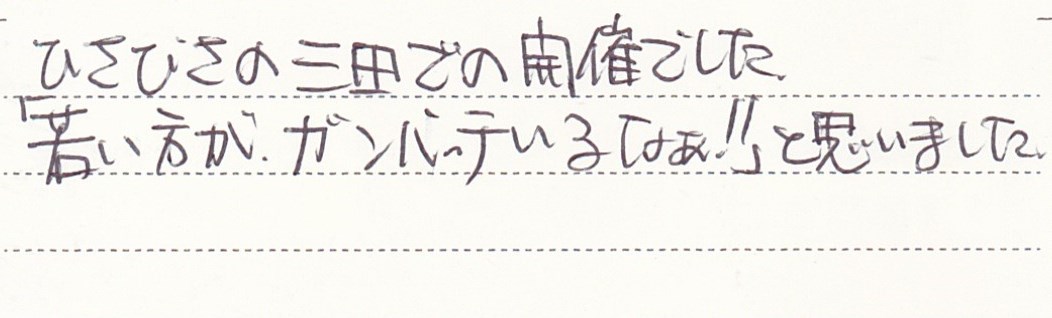 ひさびさの三田での開催でした.
「若い方が.ガンバっているなぁ!!」と思いました.